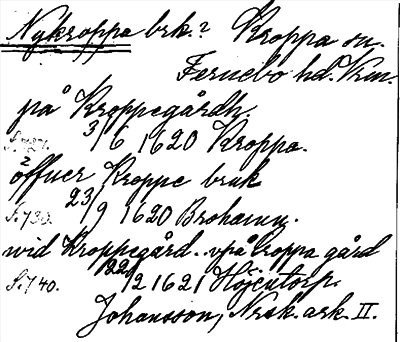 Nykroppa brk.? Kroppa sn.
Fernebo hd. Vrm.
på Kroppegårdh.
3/6 1620 Kroppa.
öffuer Kroppe bruk
S. 730. 23/9 1620 Brohamn.
wid Kroppegård.. vpå kroppa gård
S. 740. 22/2 1621 Höjentorp.
Johansson, Norsk. ark. II.